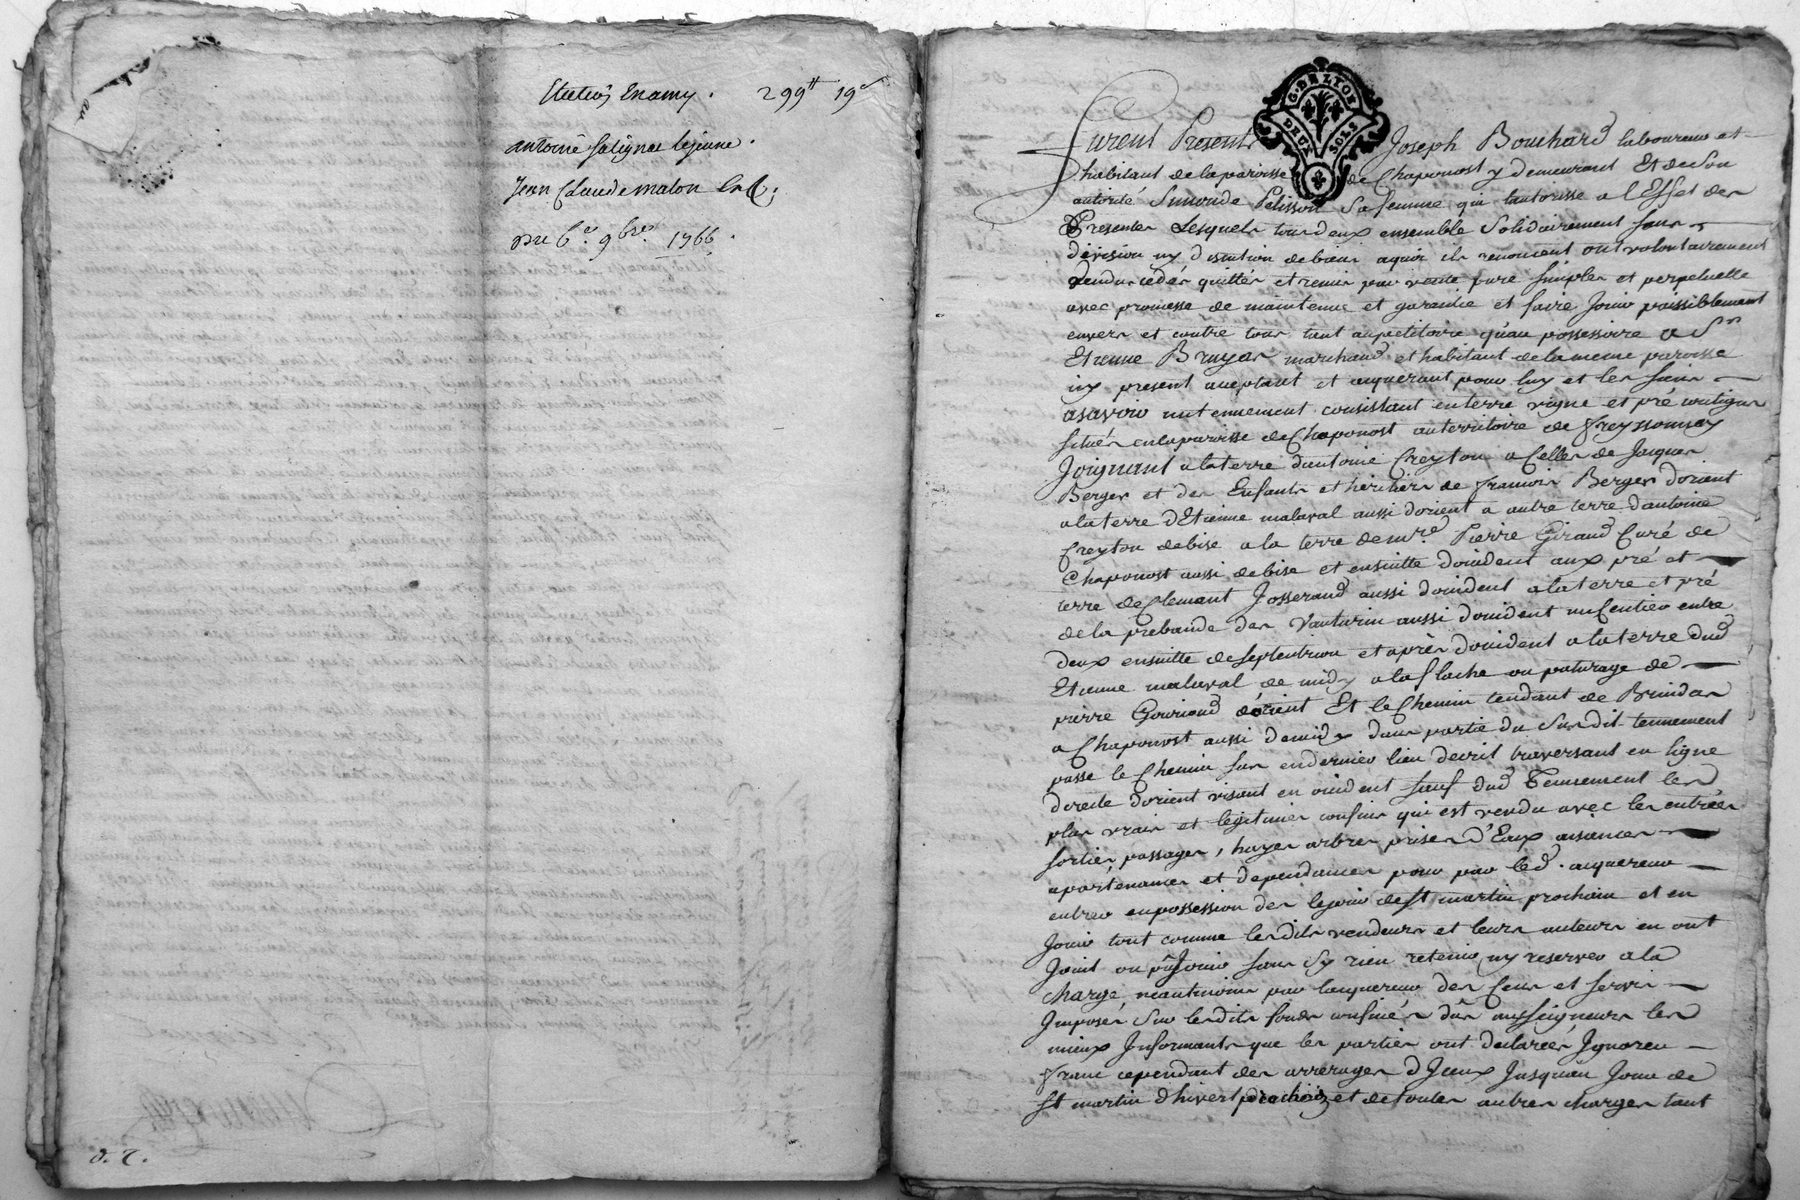 299ᵗᵗ 19ˢ
antoine Salignat lejeune.
Jean Claude maton
Du 6ᵉ 9bre 1766.
D. C.
G. DE LYON
DEUX SOLS
Furent Presents Joseph Bouchard laboureur et
habitant de la paroisse de Chaponost y demeurant Et de Son
autorité Simonde Pelisson Sa femme qui lautorise a l'Effet des
Presentes Lesquels tous deux ensemble Solidairement sans
division ny discution de biens aquoi ils renoncent ont volontairement
vendus cedés quittés et remis par vente pure simple et perpetuelle
avec promesse de maintenir et garantie et faire Jouir paisiblement
envers et contre tous tant au petitoire qu'au possessoire a Sr
Etienne Bruyas marchand et habitant de la meme paroisse
icy present aceptant et aquerant pour luy et les siens
asavoir un tennement consistant en terre vigne et pré contigus
situés en la paroisse de Chaponost au territoire de Freyssonnay
Joignant a la terre d'antoine Creyton a Celle de Jacques
Berger et des Enfants et heritiers de francois Berger dorient
a la terre d'Etienne malaval aussi dorient a autre terre d'antoine
Creyton de bise a la terre de mre Pierre Giraud Curé de
Chaponost aussi de bise et ensuitte docident aux pré et
terre de Clement Josserand aussi docident a la terre et pré
de la prebande des Vauturin aussi docident un Sentier entre
deux ensuitte de Septentrion et après docident a la terre dud
Etienne malaval de midy a la flache ou paturage de
pierre Gouriond dórient Et le Chemin tendant de Brindas
a Chaponost aussi de midy dans partie du Susdit tennement
passe le Chemin sus en dernier lieu decrit traversant en ligne
droite dorient visant en ocident sauf dud Tennement les
plus vrais et legitimes confins qui est vendu avec les entrées
sorties, passages, hayes arbres prises d'Eaux aisances
apartenances et dependances pour par led. aquereur
entrer en possession des lejour de St martin prochain et en
Jouir tout comme lesdits vendeurs et leurs auteurs en ont
Joüit ou pû Jouir sans Sy rien retenir ny reserver a la
charge neantmoins par laquereur des Cens et servis
Imposés Sur lesdits fonds confinés dûs aux seigneurs les
mieux Informants que les parties ont declarées Ignorer
franc cependant des arrerages d'Iceux Jusquau Jour de
St martin d'hivert prochain et de toutes autres charges tant